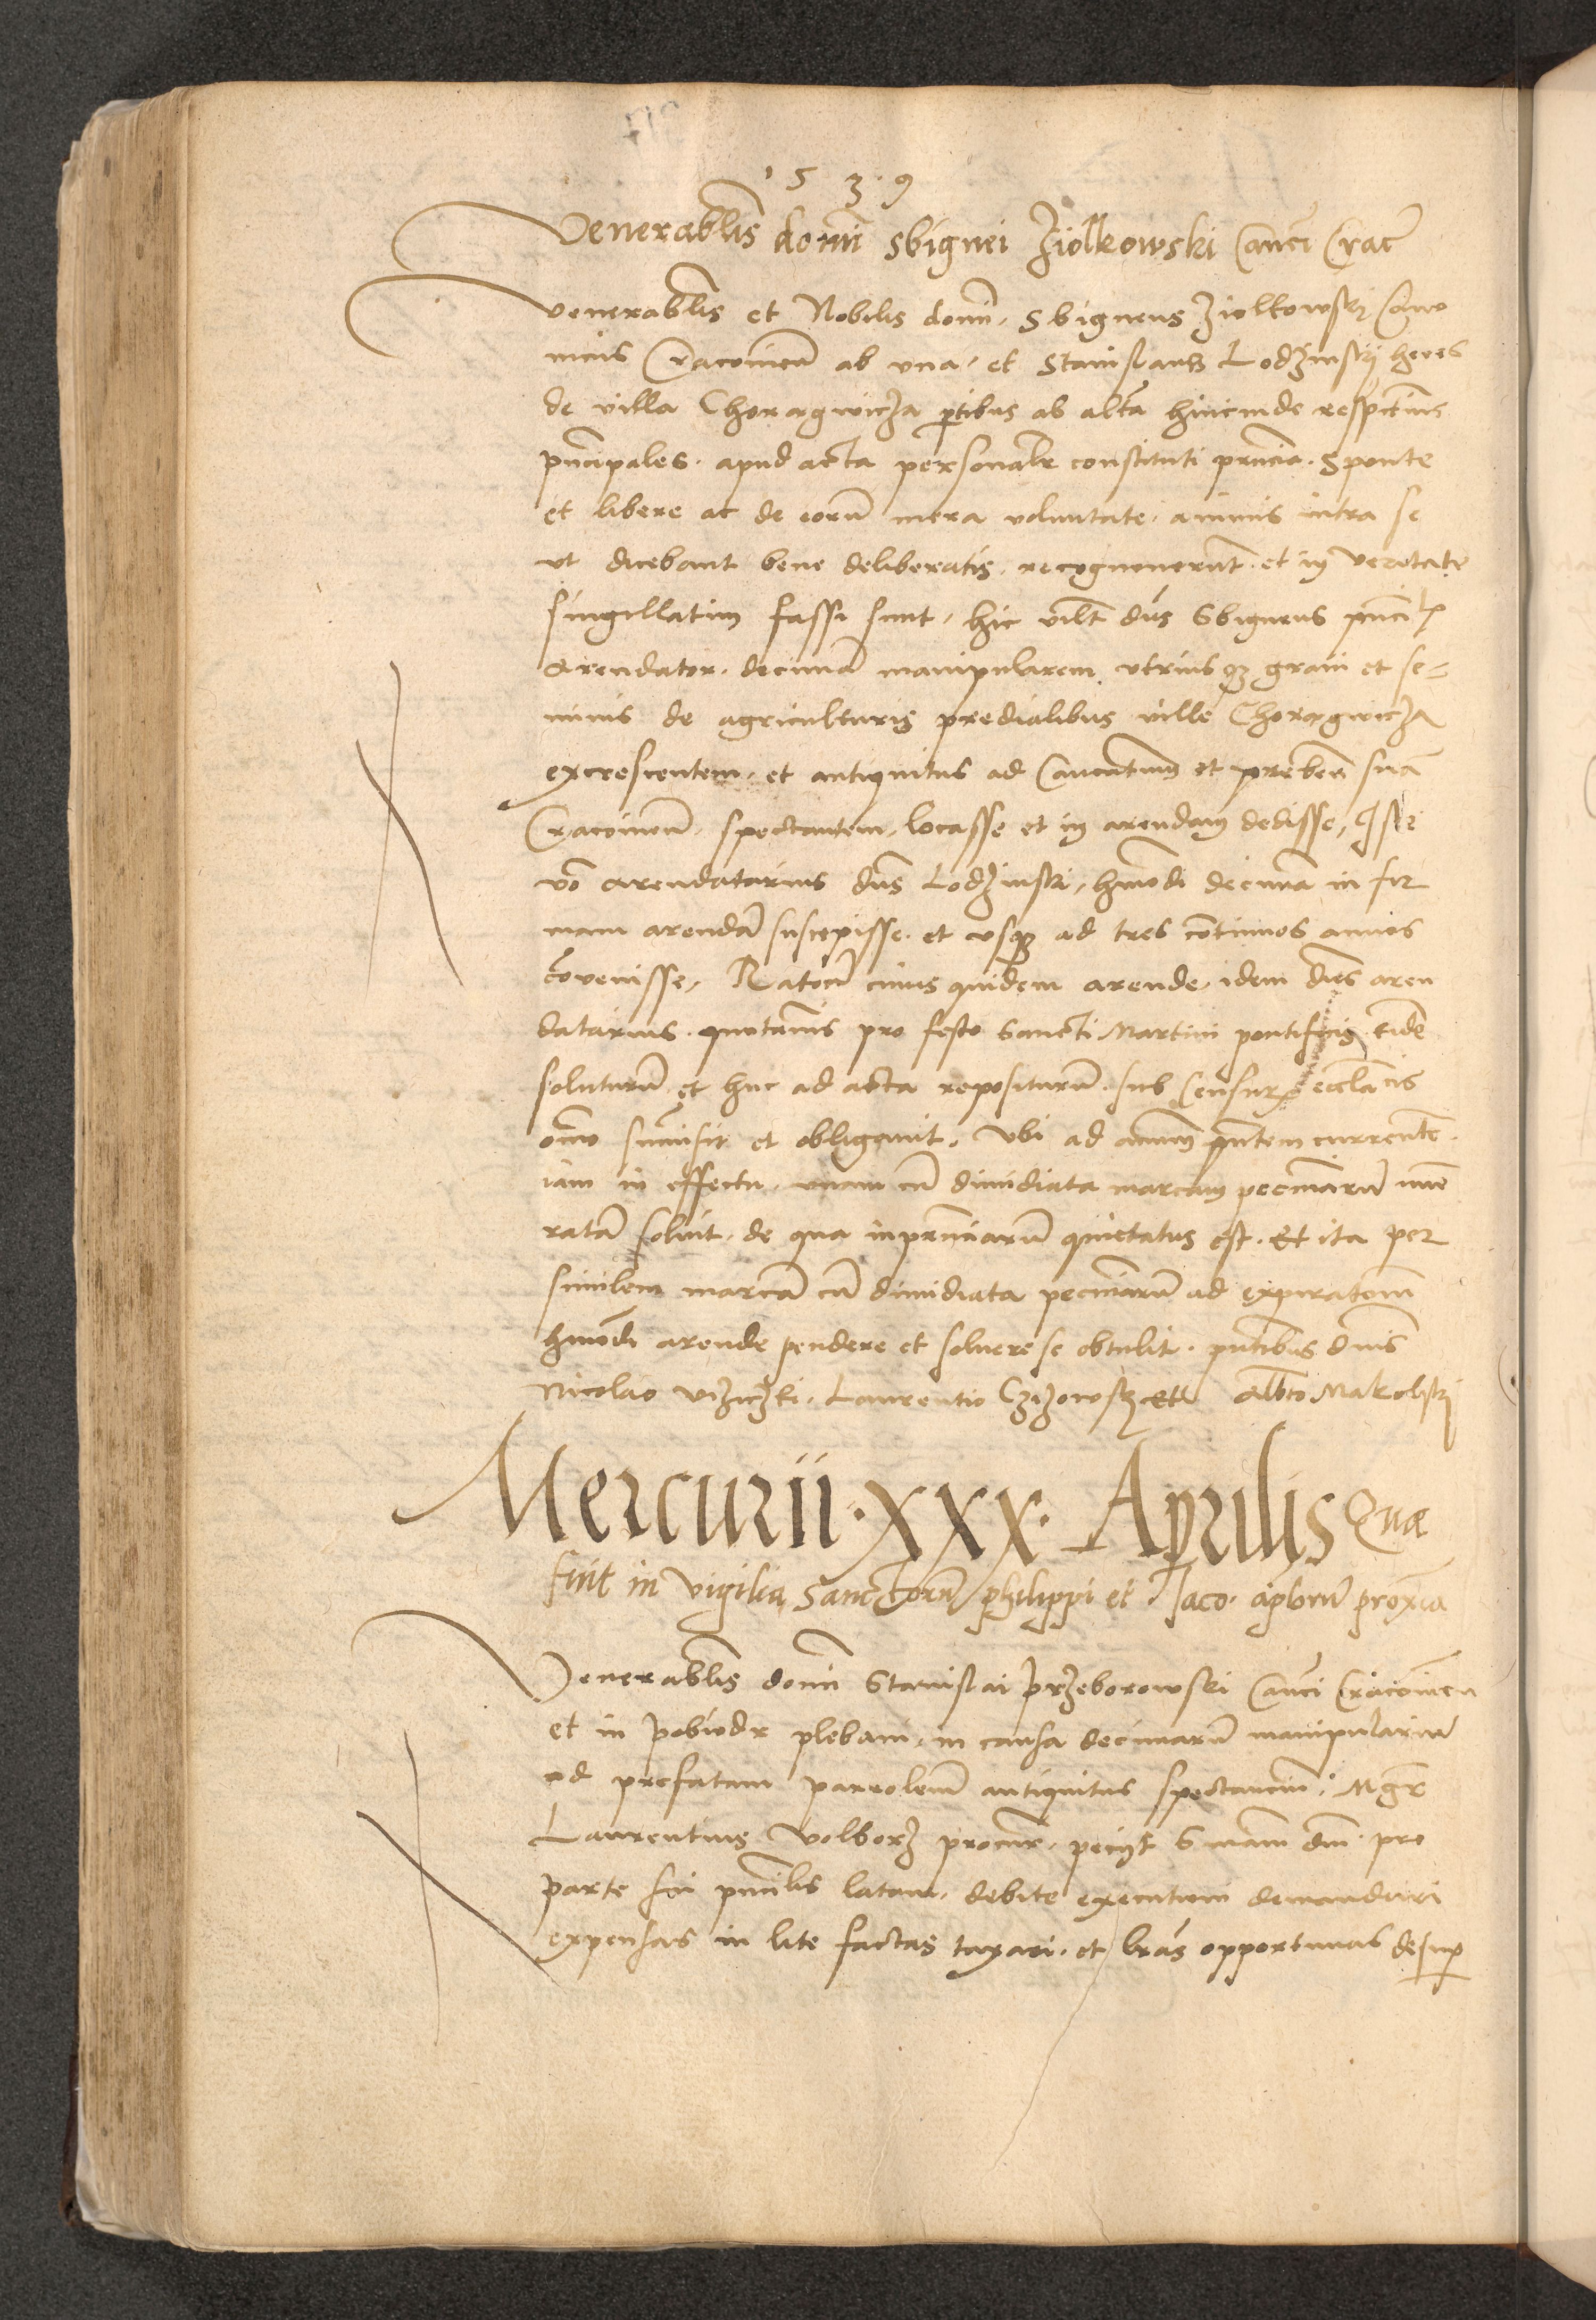 1539
Venerablis domi Sbignei Ziolkowski Canci Crac
Venerablis et Nobilis domi. Sbigneus Ziolkowski Cano
nicus Cracovien ab una. et Stanislaus Lodzinski heres
de villa Choragwicza ptibus ab altera hincinde respective
pncipales. apud acta personalr constituti pnncia. Sponte
et libere ac de eorum mera voluntate. animis intra se
ut dicebant bene deliberatis. recognoverunt. et in veritate
singillatim fassi sunt. hic vilt dns Sbigneus pnci
Arendator. decimam manipularem utriusq grani et se-
minis de agriculturis predialibus ville Choragwicza
excrescentem. et antiquitus ad Cancatum et preben suam
Cracovien. spectantem. locasse et in arendam dedisse, Iste
vo Arendatarius dns Lodzinski, hmodi decimam in fir
mam arendam suscepisse. et usq ad tres continuos annos
covenisse, Ratoe cuius quidem arende. idem dns aren
datarius. quotannis pro festo Sancti Martini pontificis eidem
soluturum et huc ad acta repositurum. sub Censur ecclacis
omo summisit et obligavit. Ubi ad annum pntem currentem.
iam in effectu. unam cum dimidiata marcam pecuniarum nume
ratam solvit. de qua inpnciarum quietatus est. Et ita per
similem marcam cum dimidiata pecuniarum ad expiratom
hmodi arende pendere et solvere se obtulit. pntibus dnis
Nicolao Viziczki. Laurentio Czizowski et Albto Makolski
Mercurii. XXX. Aprilis Quae
fuit in vigilia Sanctorum philippi et Iaco. aplorum proxima
Venerablis domi Stanislai Przeborowski Canci Cracovien
et in pobiedr plebani. in causa decimarum manipularium
ad prefatam parrolem antiquitus spectancium. Mgr
Laurentius Volborz procur. peciit Sniam dni. pro
parte sui pncilis latam. debite executioni demandari
expensas in lite factas taxari. et lras opportunas desup